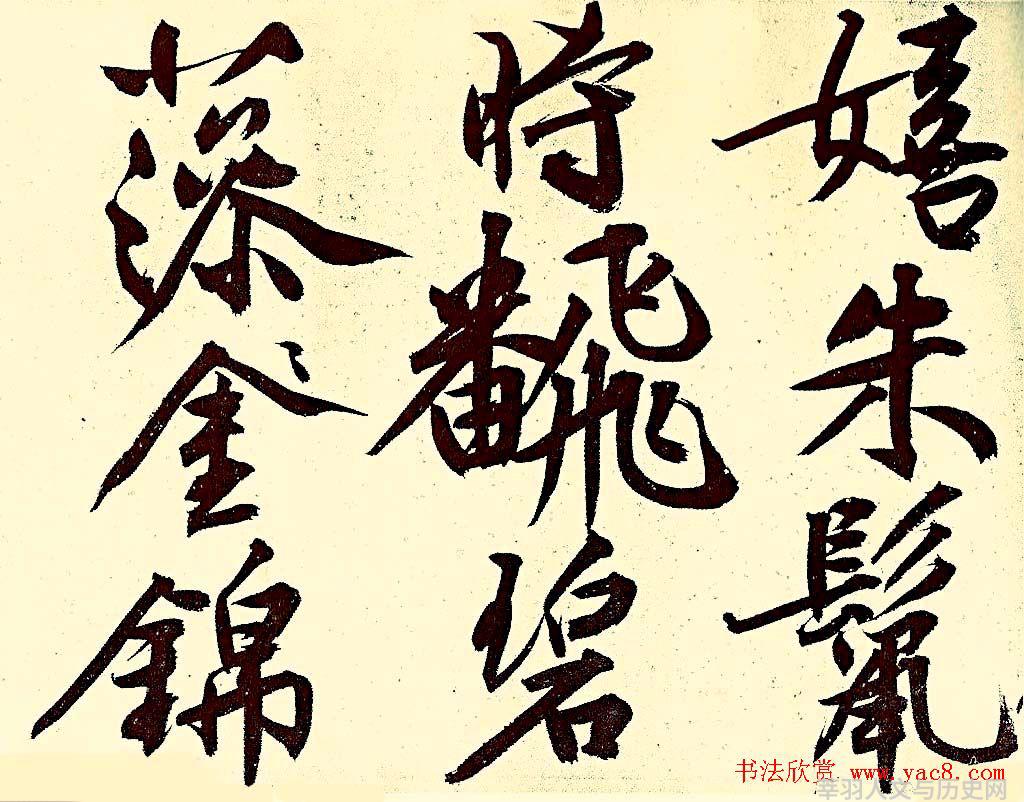 嬉朱鬣
時飜碧
藻金錦
书法欣赏 www.yac8.com
莘羽人文与历史网